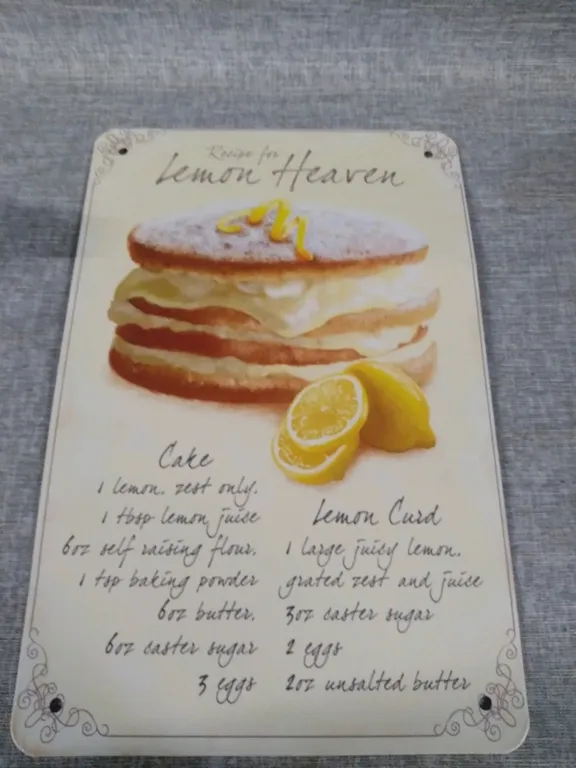 Recipe for
Lemon Heaven
Cake
1 lemon. zest only.
1 tbsp lemon juice
6oz self raising flour.
1 tsp baking powder
6oz butter.
6oz caster sugar
3 eggs
Lemon Curd
1 large juicy lemon.
grated zest and juice
3oz caster sugar
2 eggs
2oz unsalted butter